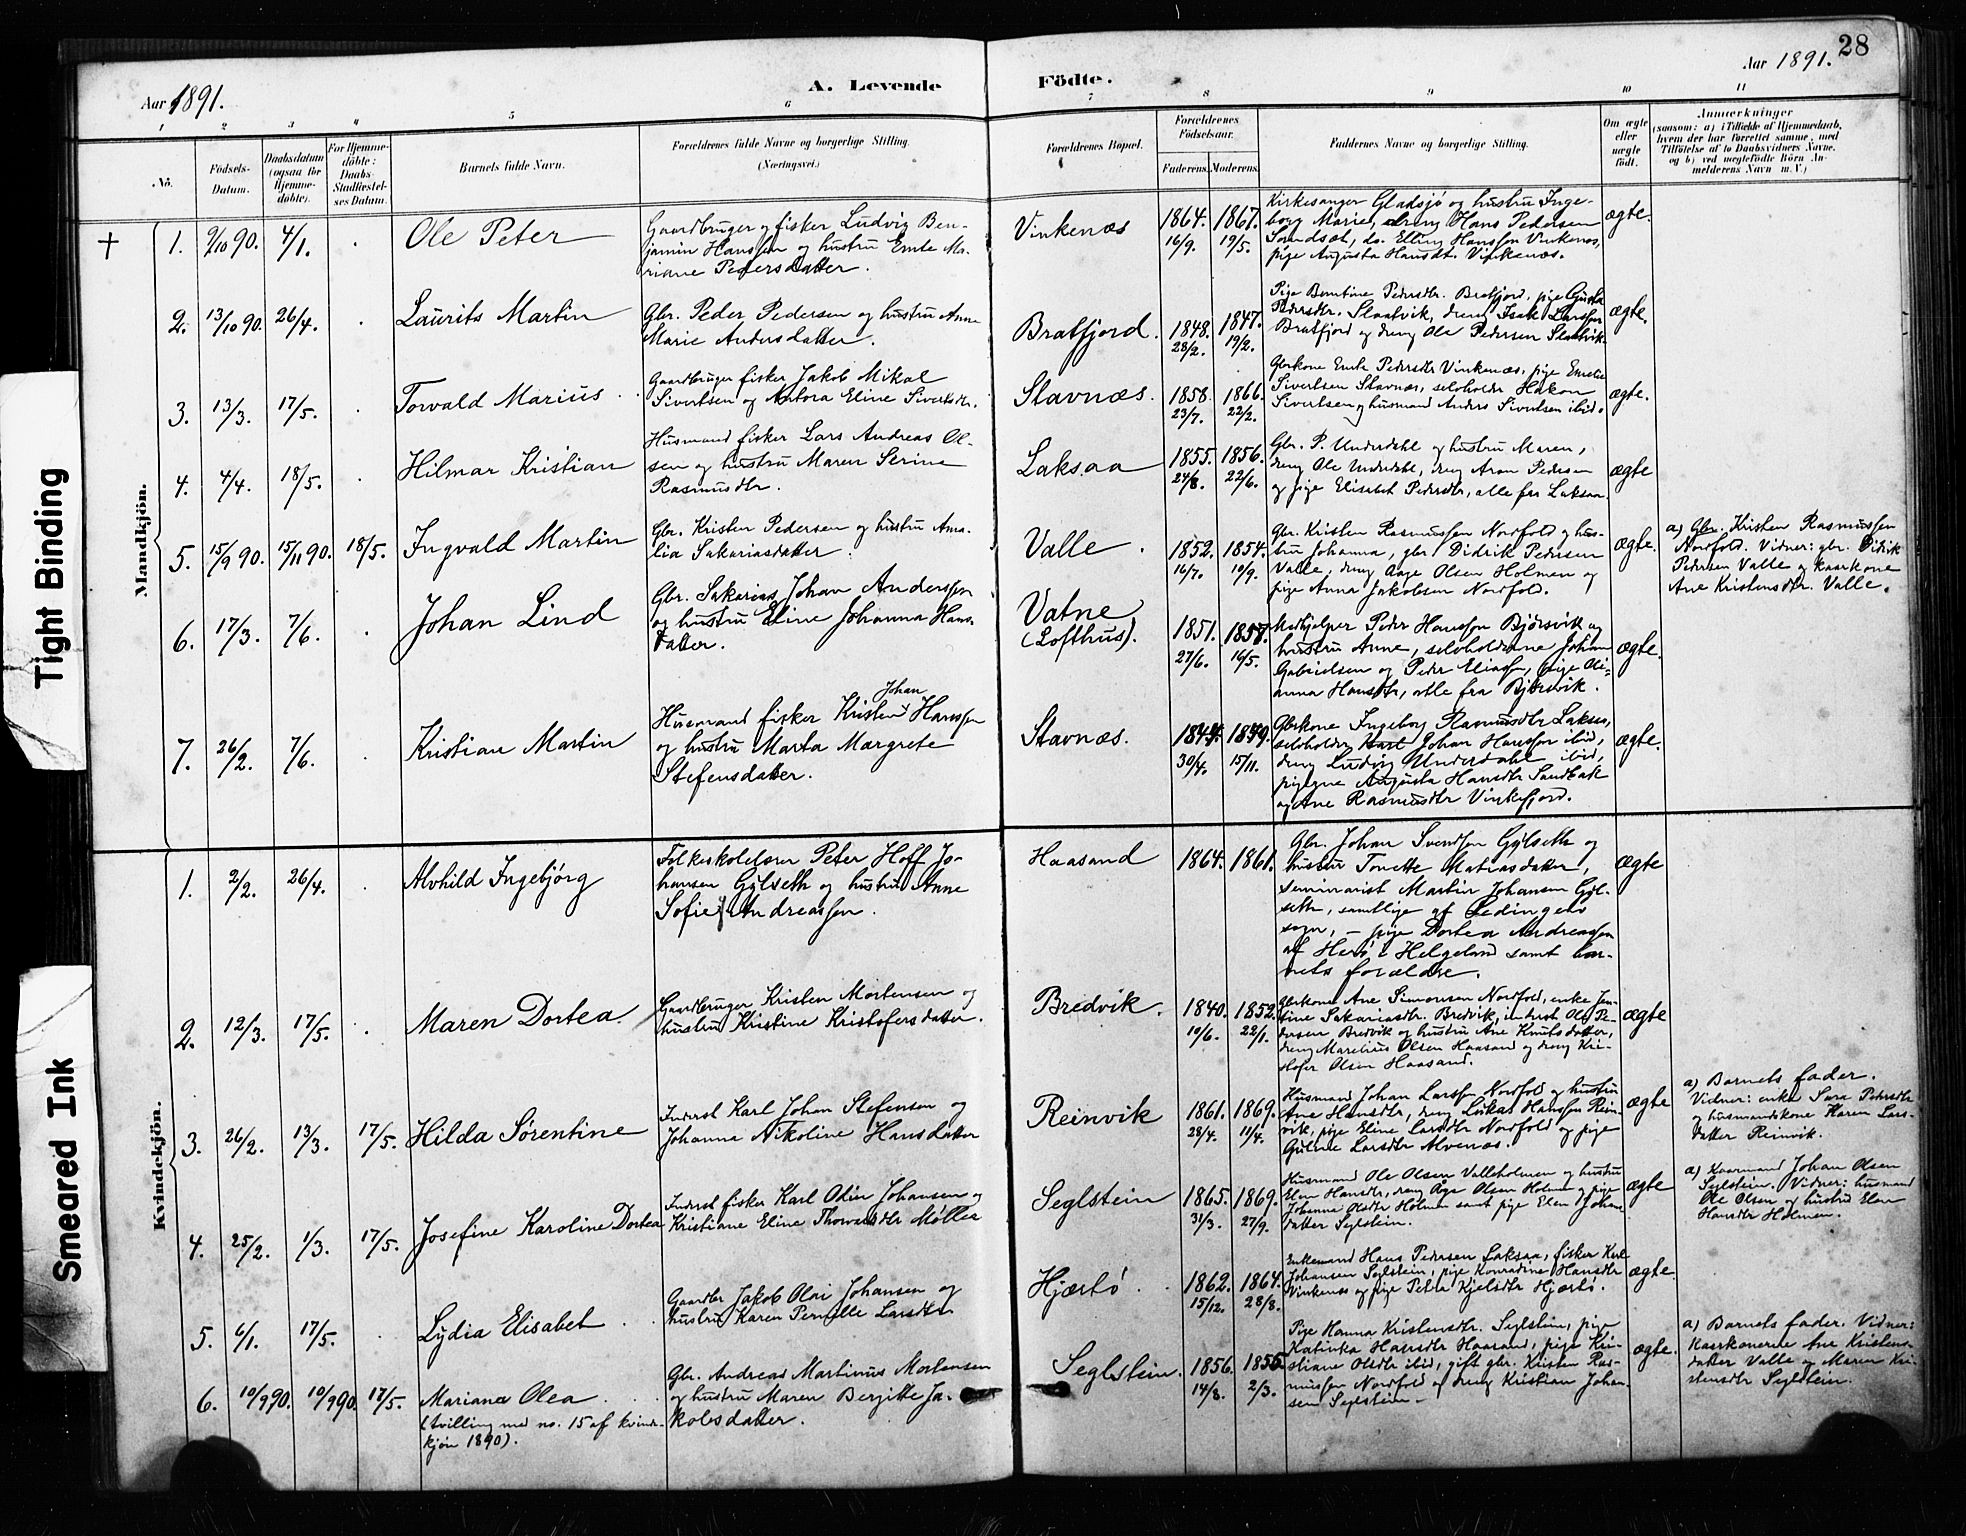 28
Aar 1891.
A. Levende Födte.
Aar 1891.
1 2 3 4 5 6 7 8 9 10 11
No.
Födsels-
Datum.
Daabsdatum
(ogsaa for
Hjemme-
døbte).
For Hjemme-
döbte:
Daabs-
Stadfæstel-
ses Datum.
Barnets fulde Navn.
Forældrenes fulde Navne og borgerlige Stilling.
(Næringsvei.)
Forældrenes Bopæl.
Forældrenes
Födselsaar.
Faderens. Moderens.
Faddernes Navne og borgerlige Stilling.
Om ægte
eller
uægte
födt.
Anmærkninger
(saasom: a) i Tilfælde af Hjemmedaab,
hvem der har forrettet samme, med
Tilföielse af to Daabsvidners Navne,
og b) ved uægtefödte Börn An-
melderens Navn m. V.)
Mandkjön.
† 1. 9/10 90. 4/1. . Ole Peter
Gaardbruger og fisker Ludvig Ben-
jamin Hanssen og hustru Emte Ma-
riane Pedersdatter.
Vinkenæs
1864. 16/9. 1867. 19/5.
Kirkesanger Gladsjø og hustru Inge-
borg Marie, dreng Hans Pedersen
Sandsæt, do. Elling Hanssen Vinkenæs,
pige Augusta Hansdt. Vinkenæs.
ægte.
2. 13/10 90. 26/4. . Laurits Martin
Gbr. Peder Pedersen og hustru Anne
Marie Andersdatter.
Bratfjord.
1848. 28/2. 1847. 19/2.
Pige Berntine Pedersdtr. Bratfjord, pige
Pedersdtr. Slaatvik, dreng Isak Larssen
Bratfjord og dreng Ole Pedersen Slaatvik.
ægte.
3. 13/3. 17/5. . Torvald Marius
Gaardbruger fisker Jakob Mikal
Sivertsen og Antora Eline Sivertsdtr.
Stavnæs.
1858. 23/7. 1866. 22/2.
Gbrkone Emte Pedersdtr Vinkenæs, pige Emelie
Sivertsen Stavnæs, selvholder Hakon
Sivertsen og husmand Anders Sivertsen ibid.
ægte.
4. 4/4. 18/5. . Hilmar Kristian
Husmand fisker Lars Andreas Ol-
sen og hustru Maren Serine
Rasmusdtr.
Laksaa
1855. 24/8. 1856. 22/6.
Gbr. P. Underdahl og hustru Maren,
dreng Ole Underdahl, dreng Aron Pedersen
og pige Elisabet Pedersdtr, alle fra Laksaa.
ægte
5. 15/9 90. 15/11 90. 18/5. Ingvald Martin
Gbr. Kristen Pedersen og hustru Ama-
lia Sakariasdatter.
Valle.
1852. 16/7. 1854. 10/9.
Gbr. Kristen Rasmussen Nordfold og hus-
tru Johanna, gbr. Didrik Pedersen
Valle, dreng Aage Olsen Holmen og
pige Anna Jakobsen Nordfold.
ægte.
a) Gbr. Kristen Rasmussen
Nordfold. Vidner: gbr. Didrik
Pedersen Valle og kaarkone
Ane Kristensdtr. Valle.
6. 17/3. 7/6. . Johan Lind
Gbr. Sakarias Johan Anderssen
og hustru Eline Johanna Hans-
datter.
Vatne
(Lofthus).
1851. 27/6. 1857. 16/5.
Medhjelper Peder Hanssen Bjørsvik og
hustru Anne, selvholderne Johan
Gabrielsen og Peder Eliassen, pige Oli-
anna Hansdtr, alle fra Bjørsvik.
ægte.
7. 26/2. 7/6. . Kristian Martin
Johan
Husmand fisker Kristen Hanssen
og hustru Marta Margrete
Stefensdatter.
Stavnæs.
1844. 30/4. 1849. 15/11.
Gbrkone Ingeborg Rasmusdtr Laksaa,
selvholder Karl Johan Hanssen ibid,
dreng Ludvig Underdahl ibid,
pigerne Augusta Hansdtr Sandbak
og Ane Rasmusdtr Vinkefjord.
ægte.
Kvindekjön.
1. 2/2. 26/4. . Alvhild Ingebjörg
Folkeskolelærer Peter Hoff Jo-
hansen Gylseth og hustru Anne
Sofie Andreassen.
Haasand
1864. 1861.
Gbr. Johan Svendsen Gylseth og
hustru Tonette Matiasdatter,
seminarist Martin Johansen Gyl-
seth, samtlige af Lødingens
sogn, – pige Dortea Andreassen
af Herø i Helgeland samt bar-
nets forældre.
ægte
2. 12/3. 17/5. . Maren Dortea.
Gaardbruger Kristen Mortensen og
hustru Kristine Kristofersdatter.
Bredvik.
1840. 10/6. 1852. 22/1.
Gbrkone Ane Simonsen Nordfold, enke Jen-
sine Sakariasdtr. Bredvik, inderst Ole Pe-
dersen Bredvik og hustru Ane Knutsdatter,
dreng Marelius Olsen Haasand og dreng Kri-
stofer Olsen Haasand.
ægte
3. 26/2. 13/3. 17/5. Hilda Sørentine
Inderst Karl Johan Stefensen og
Johanna Nikoline Hansdatter
Reinvik
1861. 28/4. 1869. 11/4.
Husmand Johan Larssen Nordfold og hustru
Ane Hansdtr, dreng Lukas Hanssen Rein-
vik, pige Eline Larsdtr Nordfold og pige
Larsdtr Alvenæs.
ægte
a) Barnets fader.
Vidner: enke Sara Pedersdtr
og husmandskone Karen Lars-
datter Reinvik.
4. 25/2. 1/3. 17/5. Josefine Karoline Dortea
Inderst fisker Karl Odin Johansen og
Kristiane Eline Thorvaldsdtr Møller
Seglstein
1865. 31/3. 1869. 27/9.
Husmand Ole Olsen Valleholmen og hustru
Elen Hansdtr, dreng Åge Olsen Holmen og pige
Johanna Olsdtr Holmen samt pige Elen Johans-
datter Seglstein.
ægte
a) Kaarmand Johan Olsen
Seglstein. Vidner: husmand
Ole Olsen og hustru Elen
Hansdtr Holmen.
5. 6/1. 17/5. . Lydia Elisabet
Gaardbr Jakob Olai Johansen og
hustru Karen Pernille Larsdtr
Hjærtø.
1862. 15/12. 1864. 28/8.
Enkemand Hans Pedersen Laksaa, fisker Karl
Johansen Seglstein, pige Konradine Hansdtr
Vinkenæs og pige Petra Kjelsdtr Hjærtø.
ægte.
6. 10/9 90. 10/9 90. 17/5. Mariana Olea.
(tvilling med no. 15 af kvinde-
kjøn 1890).
Gbr. Andreas Martinus Mortensen
og hustru Maren Bergitte Ja-
kobsdatter.
Seglstein.
1856. 14/8. 1855. 2/3.
Pige Hanna Kristensdtr. Seglstein, pige
Katinka Hansdtr Haasand, pige Kri-
stiane Olsdtr ibid, gift gbr. Kristen Ras-
mussen Nordfold og dreng Kristian Johan-
sen Seglstein.
ægte.
a) Barnets fader. Vidner:
Kaarkonerne Ane Kristens-
datter Valle og Maren Kri-
stensdtr Seglstein.
Tight Binding
Smeared Ink